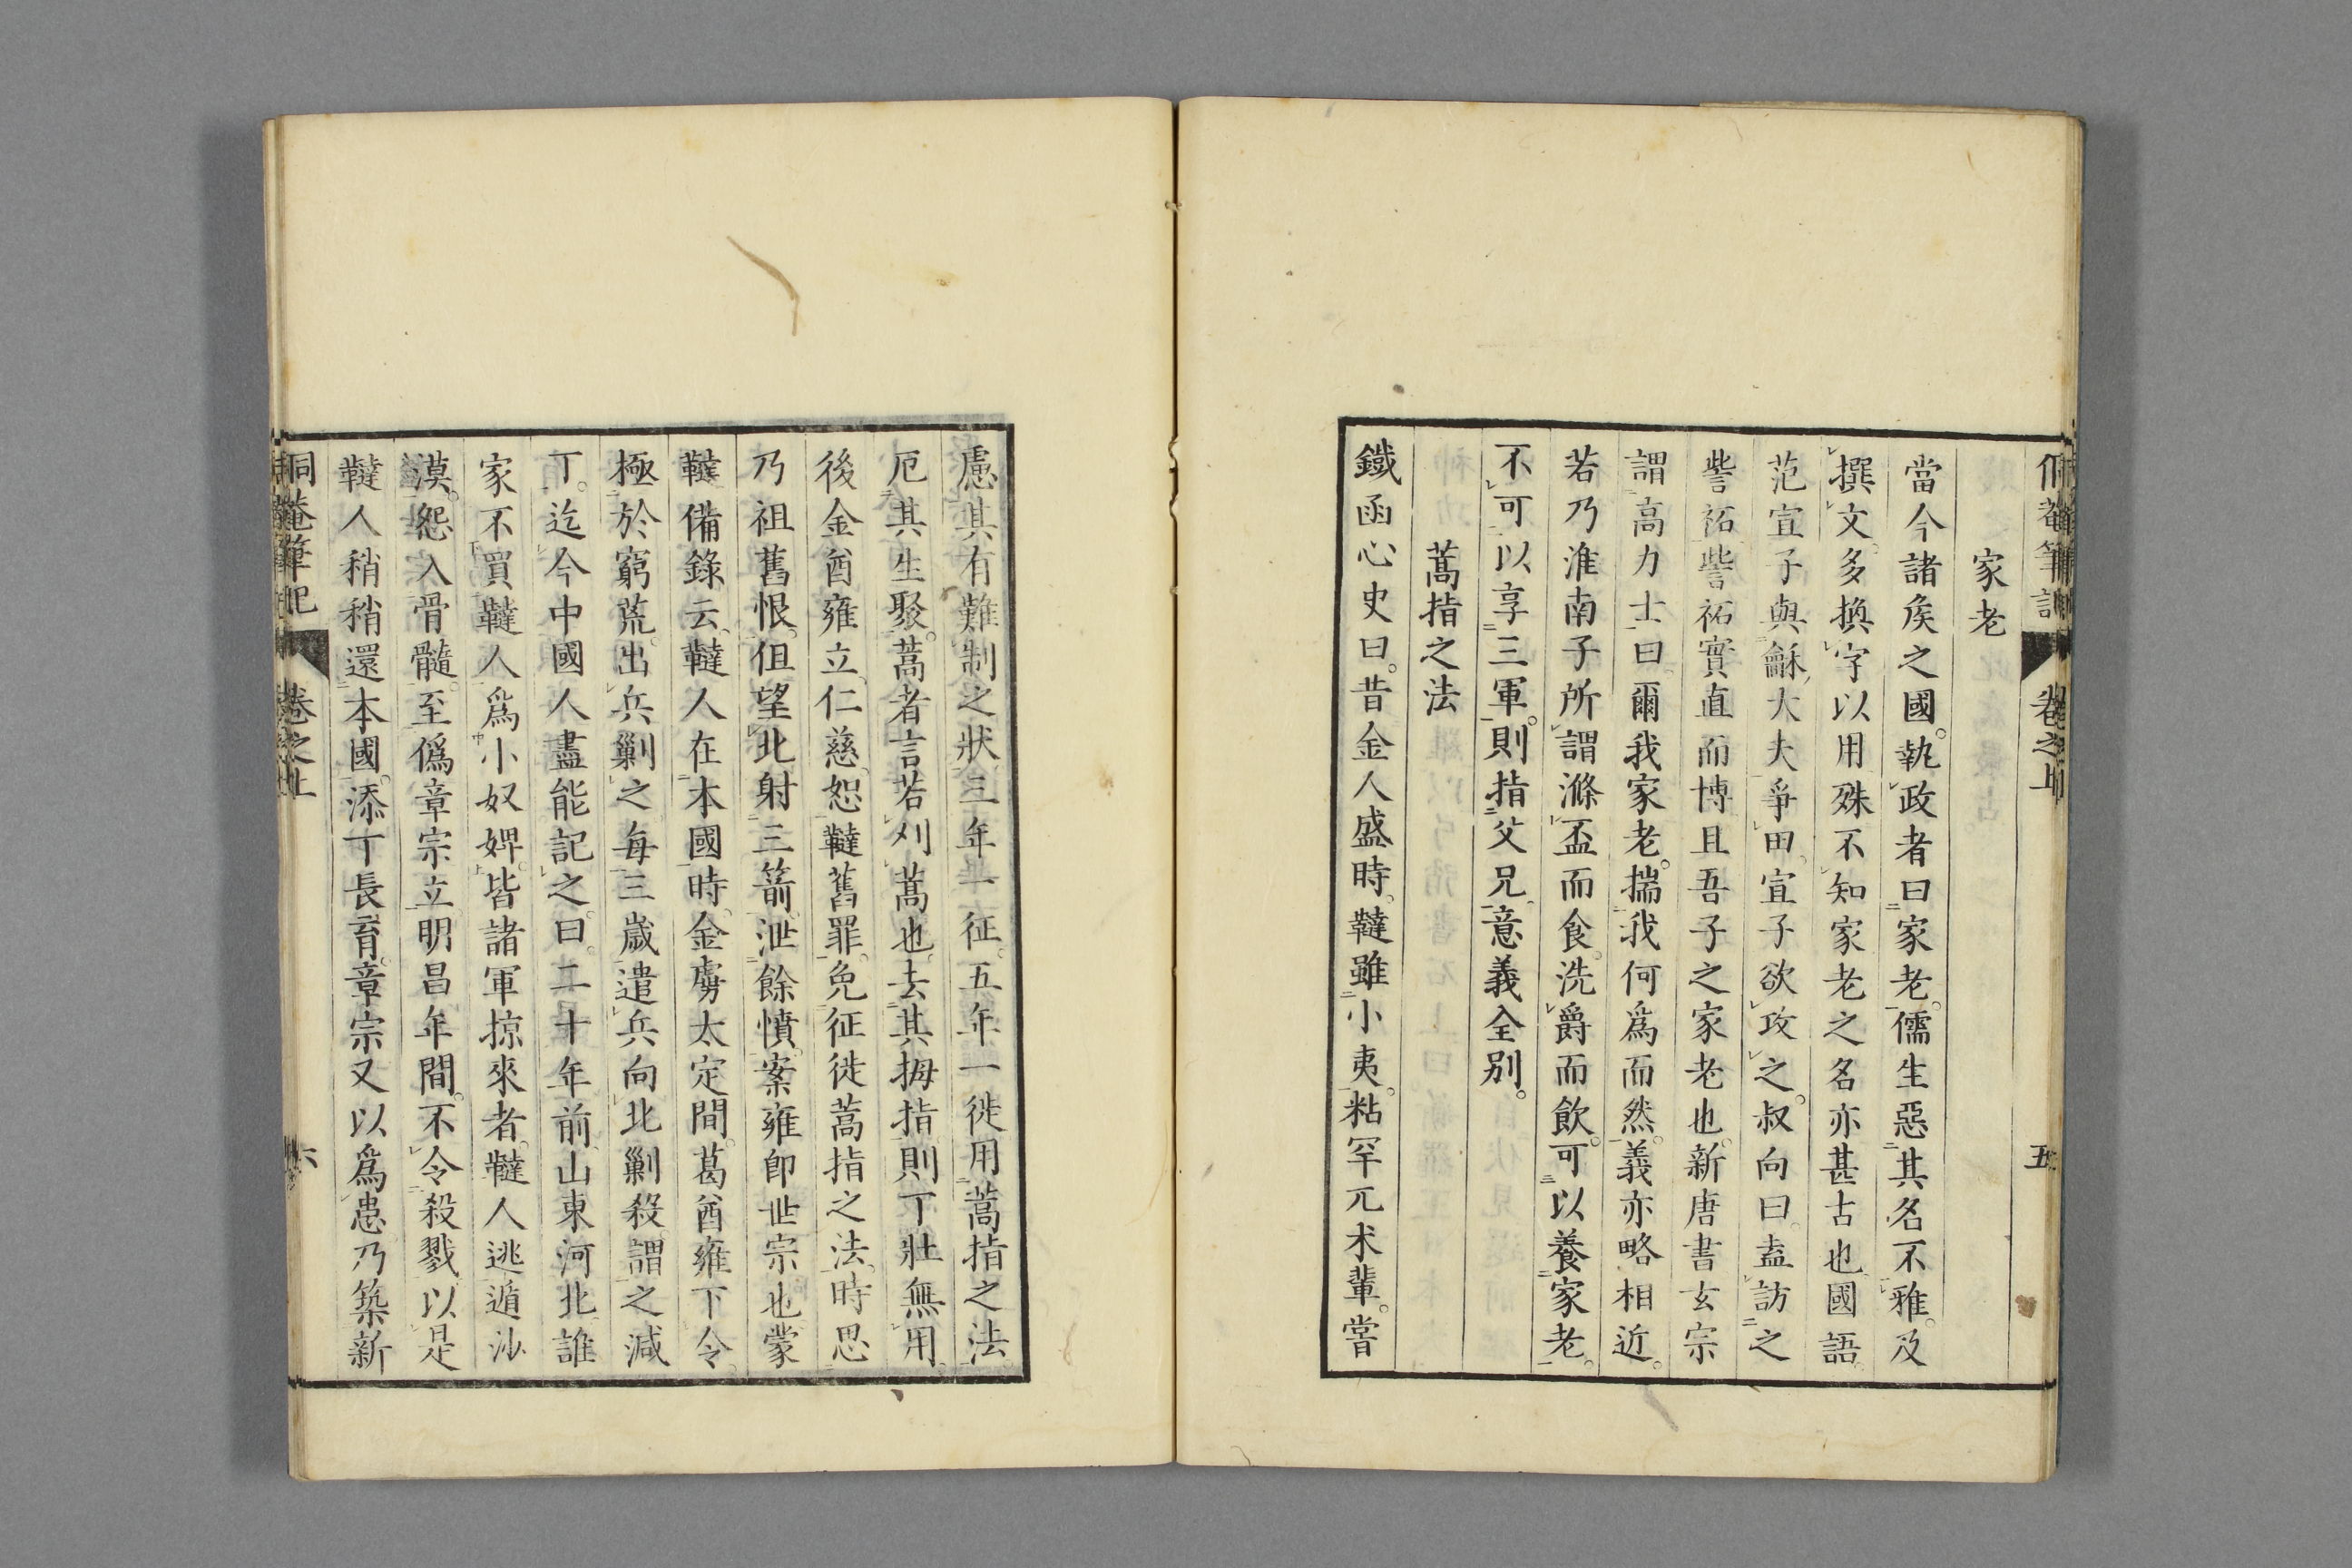 侗菴筆記 卷之上 五
家老
當今諸矦之國。執政者曰家老。儒生惡其名不雅。及
撰文多換字以用殊不知家老之名亦甚古也國語
范宣子與龢大夫爭田。宣子欲攻之。叔向曰。盍訪之
訾祏訾祏實直而博且吾子之家老也。新唐書玄宗
謂高力士曰。爾我家老。揣我何爲而然。義亦略相近。
若乃淮南子所謂滫盃而食。洗爵而飲。可以養家老。
不可以享三軍。則指父兄。意義全別。
蒿指之法
鐵函心史曰。昔金人盛時。韃雖小夷。粘罕兀朮輩。嘗
慮其有難制之狀三年一征。五年一徙用蒿指之法
厄其生聚。蒿者言若刈蒿也。去其拇指則丁壯無用。
後金酋雍立。仁慈。恕韃舊罪。免征徙蒿指之法。時思
乃祖舊恨。但望北射三箭泄餘憤。案雍卽世宗也蒙
韃備錄云。韃人在本國時。金虜太定間。葛酋雍下令。
極於窮荒。出兵剿之每三歲遣兵向北剿殺。謂之減
丁。迄今中國人盡能記之。曰。二十年前。山東河北誰
家不買韃人爲小奴婢。皆諸軍掠來者。韃人逃遁沙
漠。怨入骨髓。至僞章宗立明昌年間。不令殺戮以是
韃人稍稍還本國。添丁長育。章宗又以爲患乃築新
侗菴筆記 卷之上 六